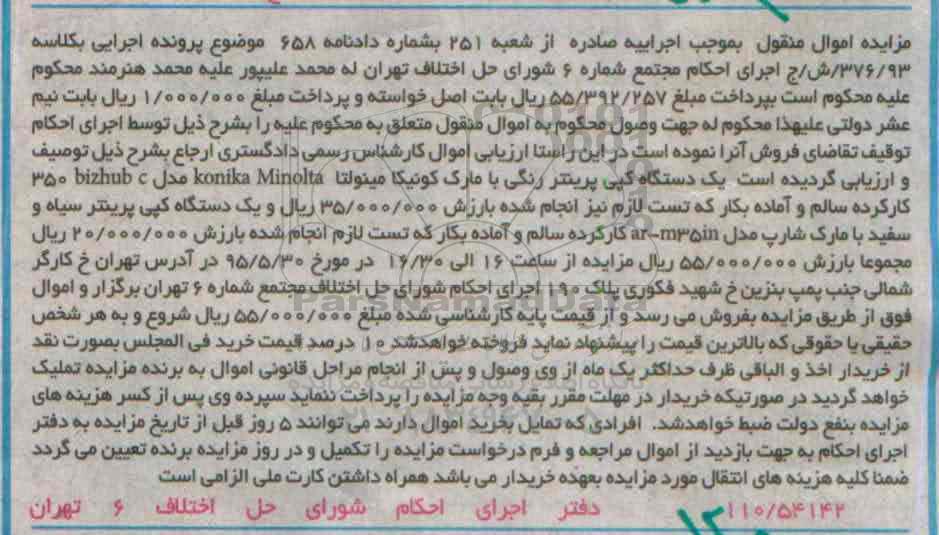 مزایده اموال منقول بموجب اجراییه صادره از شعبه ۲۵۱ بشماره دادنامه ۶۵۸ موضوع پرونده اجرایی بکلاسه
۳۷۶/۹۳/ش/ج اجرای احکام مجتمع شماره ۶ شورای حل اختلاف تهران له محمد علیپور علیه محمد هنرمند محکوم
علیه محکوم است بپرداخت مبلغ ۵۵/۳۹۲/۲۵۷ ریال بابت اصل خواسته و پرداخت مبلغ ۱/۰۰۰/۰۰۰ ریال بابت نیم
عشر دولتی علیهذا محکوم له جهت وصول محکوم به اموال منقول متعلق به محکوم علیه را بشرح ذیل توسط اجرای احکام
توقیف تقاضای فروش آنرا نموده است در این راستا ارزیابی اموال کارشناس رسمی دادگستری ارجاع بشرح ذیل توصیف
و ارزیابی گردیده است یک دستگاه کپی پرینتر رنگی با مارک کونیکا مینولتا konika Minolta مدل bizhub c ۳۵۰
کارکرده سالم و آماده بکار که تست لازم نیز انجام شده بارزش ۳۵/۰۰۰/۰۰۰ ریال و یک دستگاه کپی پرینتر سیاه و
سفید با مارک شارپ مدل ar-m۳۵in کارکرده سالم و آماده بکار که تست لازم انجام شده بارزش ۲۰/۰۰۰/۰۰۰ ریال
مجموعا بارزش ۵۵/۰۰۰/۰۰۰ ریال مزایده از ساعت ۱۶ الی ۱۶/۳۰ در مورخ ۹۵/۵/۳۰ در آدرس تهران خ کارگر
شمالی جنب پمپ بنزین خ شهید فکوری پلاک ۱۹۰ اجرای احکام شورای حل اختلاف مجتمع شماره ۶ تهران برگزار و اموال
فوق از طریق مزایده بفروش می رسد و از قیمت پایه کارشناسی شده مبلغ ۵۵/۰۰۰/۰۰۰ ریال شروع و به هر شخص
حقیقی یا حقوقی که بالاترین قیمت را پیشنهاد نماید فروخته خواهدشد ۱۰ درصد قیمت خرید فی المجلس بصورت نقد
از خریدار اخذ و الباقی ظرف حداکثر یک ماه از وی وصول و پس از انجام مراحل قانونی اموال به برنده مزایده تملیک
خواهد گردید در صورتیکه خریدار در مهلت مقرر بقیه وجه مزایده را پرداخت ننماید سپرده وی پس از کسر هزینه های
مزایده بنفع دولت ضبط خواهدشد. افرادی که تمایل بخرید اموال دارند می توانند ۵ روز قبل از تاریخ مزایده به دفتر
اجرای احکام به جهت بازدید از اموال مراجعه و فرم درخواست مزایده را تکمیل و در روز مزایده برنده تعیین می گردد
ضمنا کلیه هزینه های انتقال مورد مزایده بعهده خریدار می باشد همراه داشتن کارت ملی الزامی است
۱۱۰/۵۴۱۴۲ دفتر اجرای احکام شورای حل اختلاف ۶ تهران
ParsNamadData